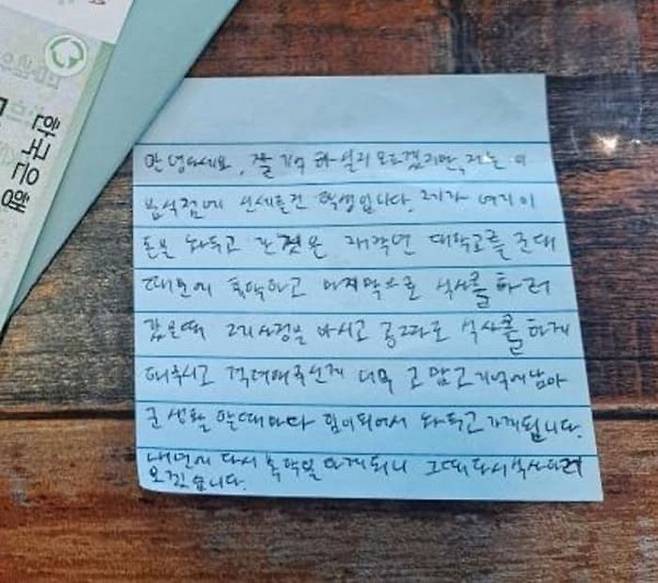 한국은행
안녕하세요, 절 기억 하실지 모르겠지만, 저는 이
음식점에 신세를진 학생입니다. 제가 여기이
돈을 놔두고 간것은 재작년 대학교를 군대
때문에 휴학하고 마지막으로 식사를 하러
갔을때 제사정을 아시고 공짜로 식사를 하게
해주시고 격려해주신게 너무 고맙고 기억에남아
군 생활 할때마다 힘이되어서 놔두고 가게됩니다.
내년에 다시 복학을 하게되니 그때 다시식사하러
오겠습니다.